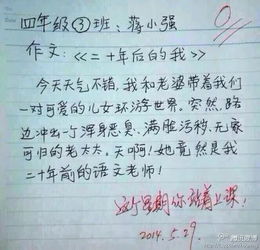 四年级③班：蒋小强
0
作文：《二十年后的我》
今天天气不错，我和老婆带着我们
一对可爱的儿女环游世界。突然，路
边冲出一个浑身恶臭、满脸污秽、无家
可归的老太太。天啊！她竟然是我
二十年前的语文老师！
这个星期你站着上课！
2014.5.29.
@腾讯微博